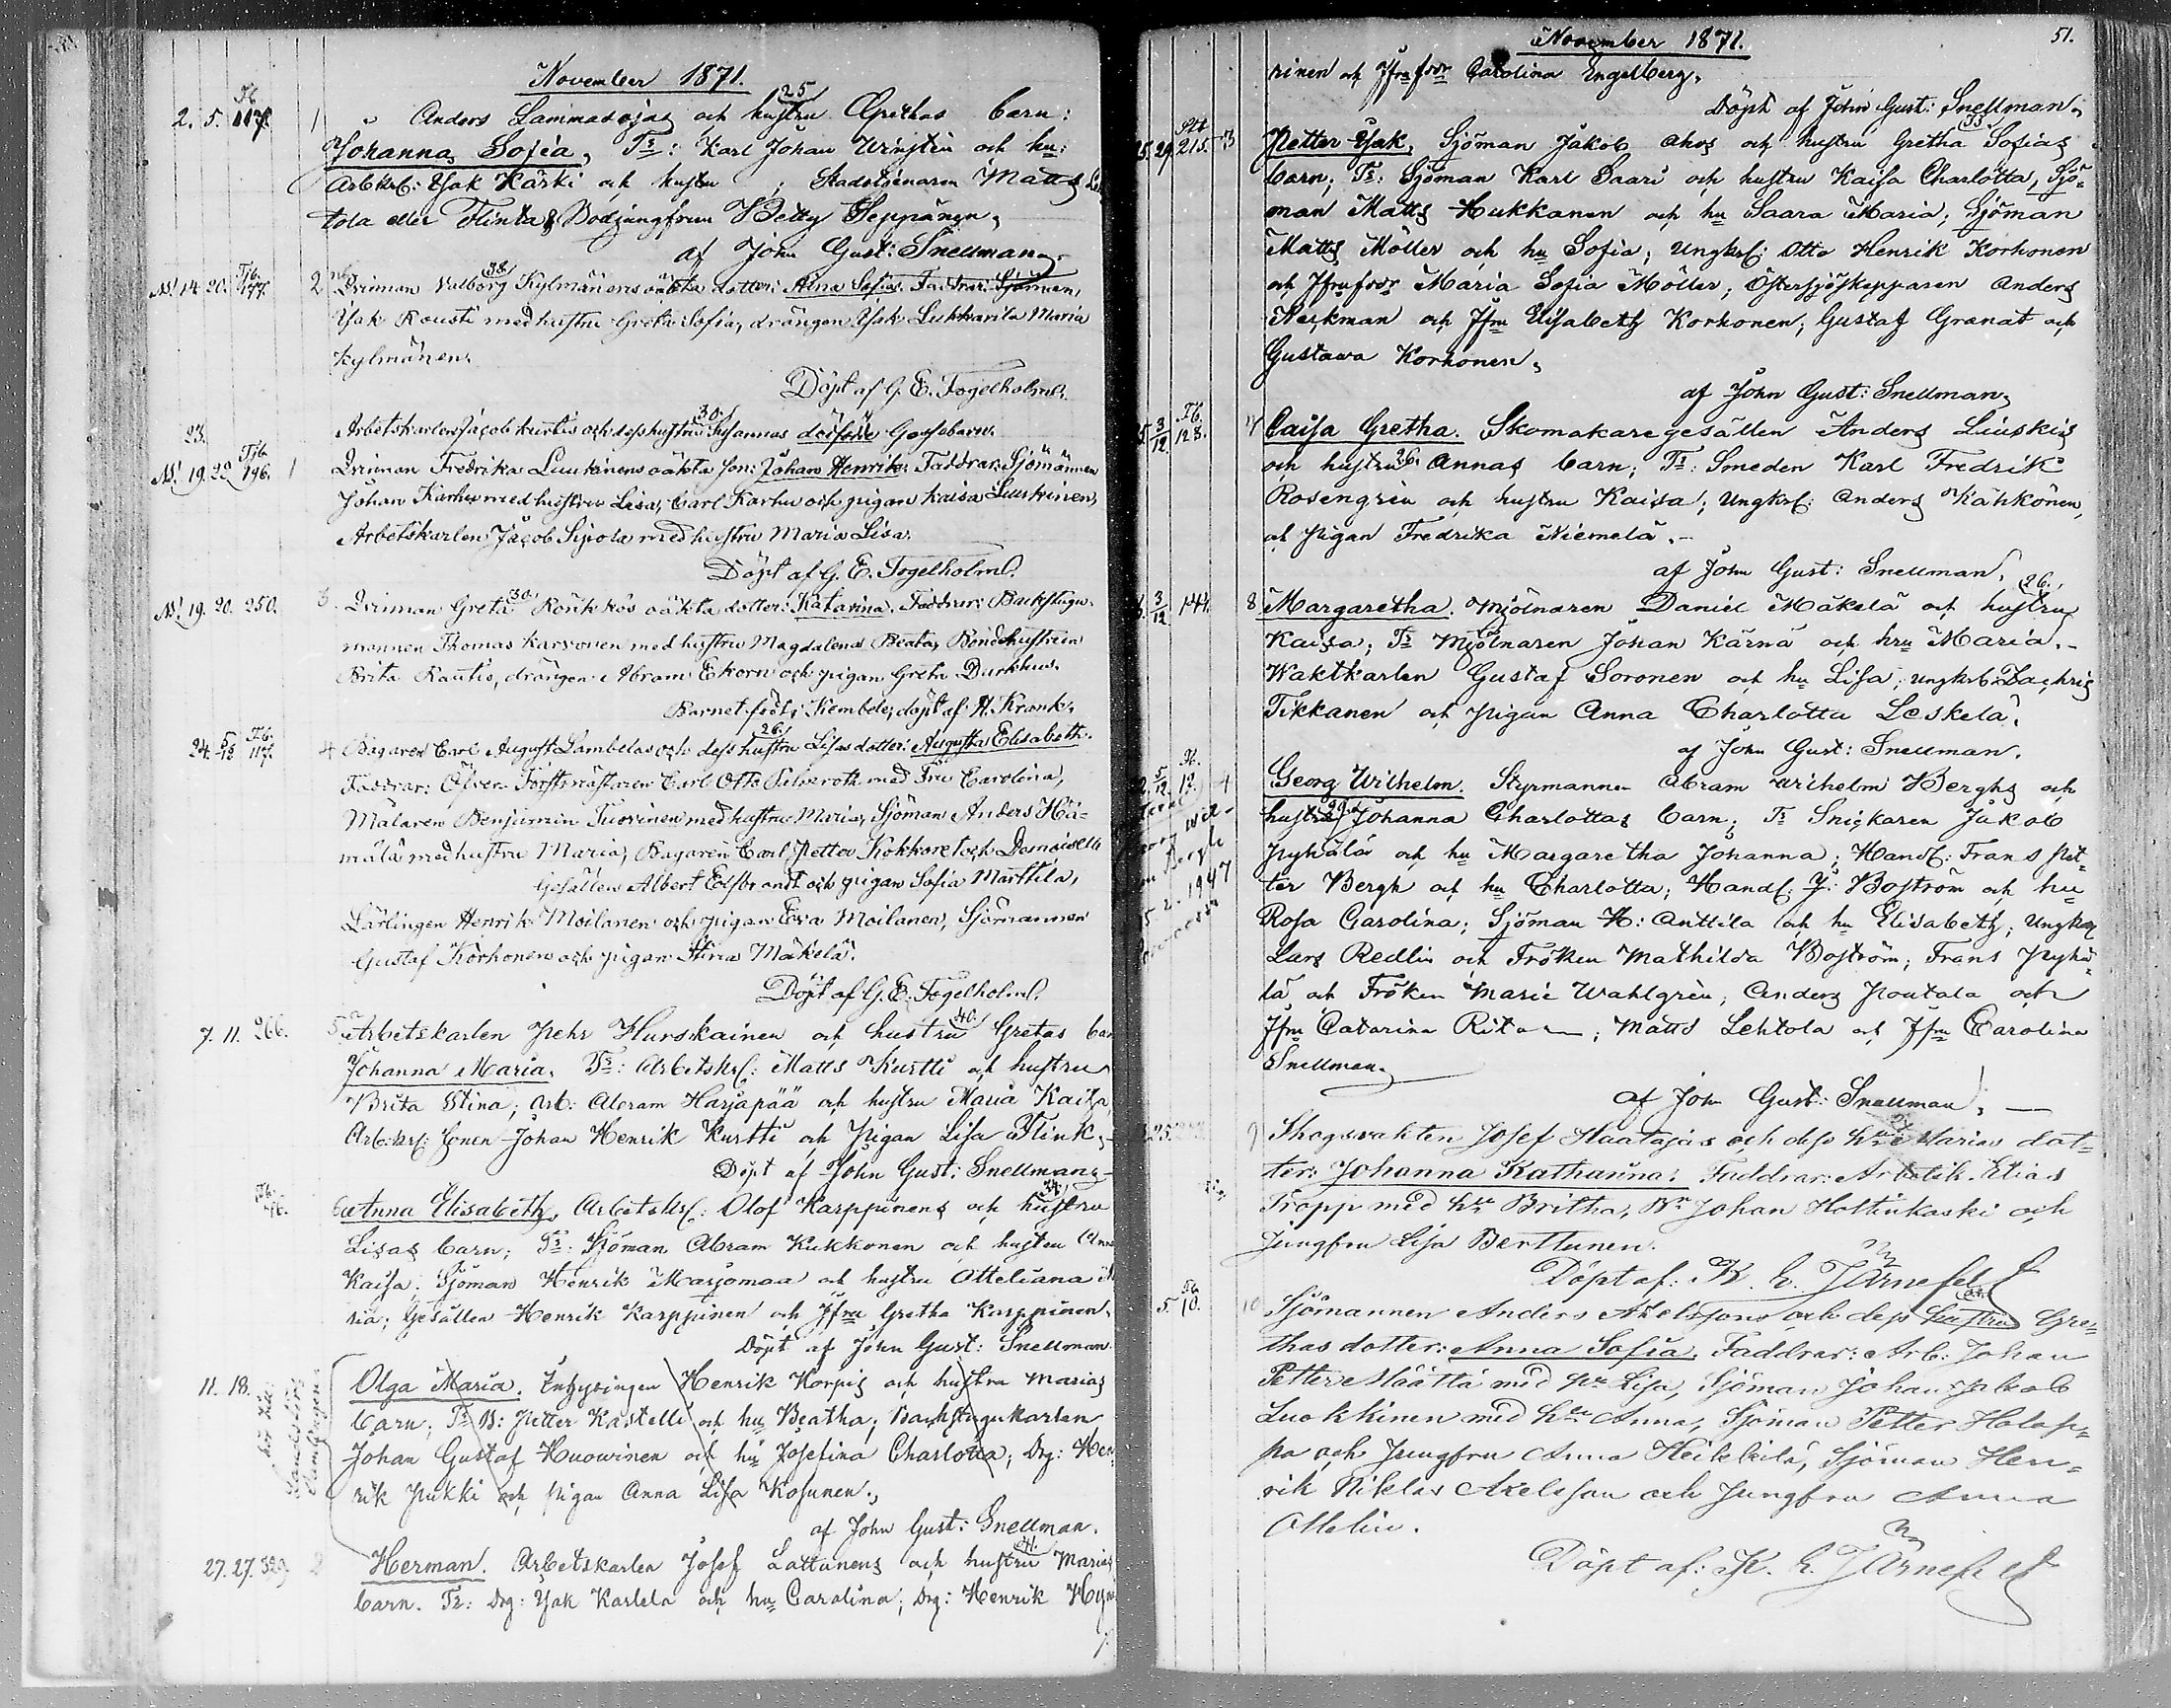 November 1871.
2. 5. 117. 1 Anders Lammasojas och hustru Grethas barn: 25
Johanna Sofia, Fr: Karl Johan Wringtin och hu:
Arbkrl: Isak Kärki och hustru ; Stadstjenaren Matts Leh
tola eller Flinta & Bodjungfrun Betty Seppänen,
af John Gust: Snellman.
N! 14. 20. 177. 2 Qvinnan Valborg Kylmänens oäkta dotter: Aina Sofia. Faddrar: Sjöman, 38
Isak Rousti med hustru Greta Sofia, drängen Isak Lukkarila Maria
Kylmänen.
Döpt af G. E. Fogelholm.
23. Arbetskarlen Jacob Kurtis och dess hustru Susannas dödfödde Gossebarn. 30.
N! 19. 29. 196. 1 Qvinnan Fredrika Luukinens oäkta son: Johan Henrik. Faddrar: Sjömännen
Johan Karhu med hustru Lisa, Carl Karhu och pigan Kaisa Luukinen,
Arbetskarlen Jacob Sipola med hustru Maria Lisa.
Döpt af G. E. Fogelholm.
N! 19. 20. 250. 3. Qvinnan Greta Rönkkös oäkta dotter: Katarina. Faddrar: Backstugu- 30.
mannen Thomas Karvonen med hustru Magdalena Beata, Bondehustrun
Brita Rautio, drängen Abram Ekorn och pigan Greta Durkhus.
Barnet född i Kembele, döpt af H. Krank.
24. 117. 4 Bagaren Carl August Lambelas och dess hustru Lisas dotter: Augusta Elisabeth. 26.
Faddrar: Öfver-Forstmästaren Carl Otto med Fru Carolina,
Målaren Benjamin Tuovinen med hustru Maria, Sjöman Anders Hä-
mälä med hustru Maria, Bagaren Carl Petter Kokko och Demoiselle
Gesällen Albert och pigan Sofia Marttila,
Lärlingen Henrik Moilanen och pigan Eva Moilanen, Sjömannen
Gustaf Korhonen och pigan Stina Mäkelä.
Döpt af G. E. Fogelholm.
7. 11. 266. 5 Arbetskarlen Pehr Hurskainen och hustru Gretas bar 40.
Johanna Maria. Fr: Arbetskrl: Matts Kurtti och hustru
Brita Stina; Arb: Abram Harjapää och hustru Maria Kaisa,
Arb:krl: Sonen Johan Henrik Kurtti och Pigan Lisa Flink,
Döpt af John Gust: Snellman
6 Anna Elisabeth, Arbetskrl: Olof Karppinens och hustru 34.
Lisas barn; Fr: Sjöman Abram Kukkonen och hustru Anna
Kaisa, Sjöman Henrik Marjomaa och hustru Otteliana
ria; Gesällen Henrik Karppinen och Jfru Gretha Karppinen,
Döpt af John Gust: Snellman
11. 18. Olga Maria. Inhysingen Henrik Korpis och hustru Marias
barn; Fr B: Petter Kastelli och hu Beatha; Backstugukarlen
Johan Gustaf Huowinen och hu Josefina Charlotta; Drg: Hen
rik Pukki och pigan Anna Lisa Kosunen.,
af John Gust: Snellman.
27. 27. 329. 2 Herman. Arbetskarlen Josef Lattunens och hustru Marias 41.
barn. Fr: Drg: Isak Karlela och hu Carolina; Drg: Henrik
November 1871. 51.
rinen och Jfru Carolina Engelberg,
Döpt af John Gust: Snellman,
29. 215. Petter Isak, Sjöman Jakob Ahos och hustru Gretha Sofias 33
barn; Fr: Sjöman Karl Saari och hustru Kaisa Charlotta, Sjö-
man Matts Hukkanen och hu Saara Maria; Sjöman
Matts Möller och hu Sofia; Ungkrl: Otto Henrik Korhonen
och Jfru Maria Sofia Möller; Östersjöskepparen Anders
Neckman och Jfru Elisabeth Korhonen; Gustaf Granat och
Gustawa Korhonen,
af John Gust: Snellman,
3/12 128. 7 Caisa Gretha. Skomakaregesällen Anders Liuskis
och hustru Annas barn; Fr: Smeden Karl Fredrik 26.
Rosengrén och hustru Kaisa; Ungkrl: Anders Kähkönen,
och pigan Fredrika Niemelä.-
af John Gust: Snellman,
3/12 144. 8 Margaretha. Mjölnaren Daniel Mäkelä och hustru 26.
Kaisa; Fr Mjölnaren Johan Kärnä och hru Maria.-
Waktkarlen Gustaf Soronen och hu Lisa; ungkrl Zachris
Tikkanen och pigan Anna Charlotta Leskelä,
af John Gust: Snellman.
5/12 12. Georg Wilhelm. Styrmannen Abram Wilhelm Berghs och
hustru Johanna Charlottas barn; Fr Snickaren Jakob
Pyhälä och hu Margaretha Johanna; Handl: Frans Pet-
ter Bergh och hu Charlotta; Handl: J: Boström och hu
Rosa Carolina; Sjöman H: Anttila och hu Elisabeth; Ungkrl
Lars Redlin och Fröken Mathilda Boström; Frans Pyhä-
lä och Fröken Marie Wahlgrén; Anders Poutala och
Jfru Catarina Rita; Matts Lehtola och Jfru Carolina
Snellman,
af John Gust: Snellman,
25. 9 Skogsvakten Josef Haatajas och dess hru Marias dot-
ter: Johanna Katharina. Faddrar: Arbetsk. Elias
Tropp med hru Britha, Johan Hottinkoski och
Jungfru Lisa Berttunen.
Döpt af: K. E. Järnefelt
5. 10. 10 Sjömannen Anders Axelssons och dess hustru Gre-
thas dotter: Anna Sofia. Faddrar: Arb: Johan
Petter Määttä med Lisa, Sjöman Johan Jakob
Luokkinen med hru Anna, Sjöman Petter Holap-
pa och Jungfru Anna Heikkilä, Sjöman Hen-
rik Niklas Axelsson och Jungfru Anna
Ottelin.
Döpt af: K. E. Järnefelt